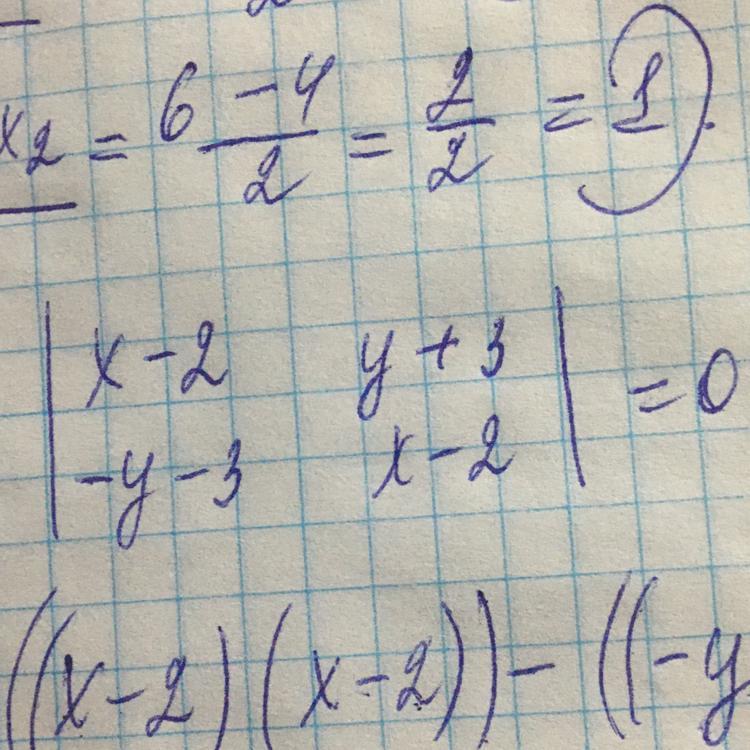 x2 = 6 - 4 / 2 = 2 / 2 = 1.
| x - 2 y + 3 | = 0
| -y - 3 x - 2 |
((x - 2)(x - 2)) - ((-y